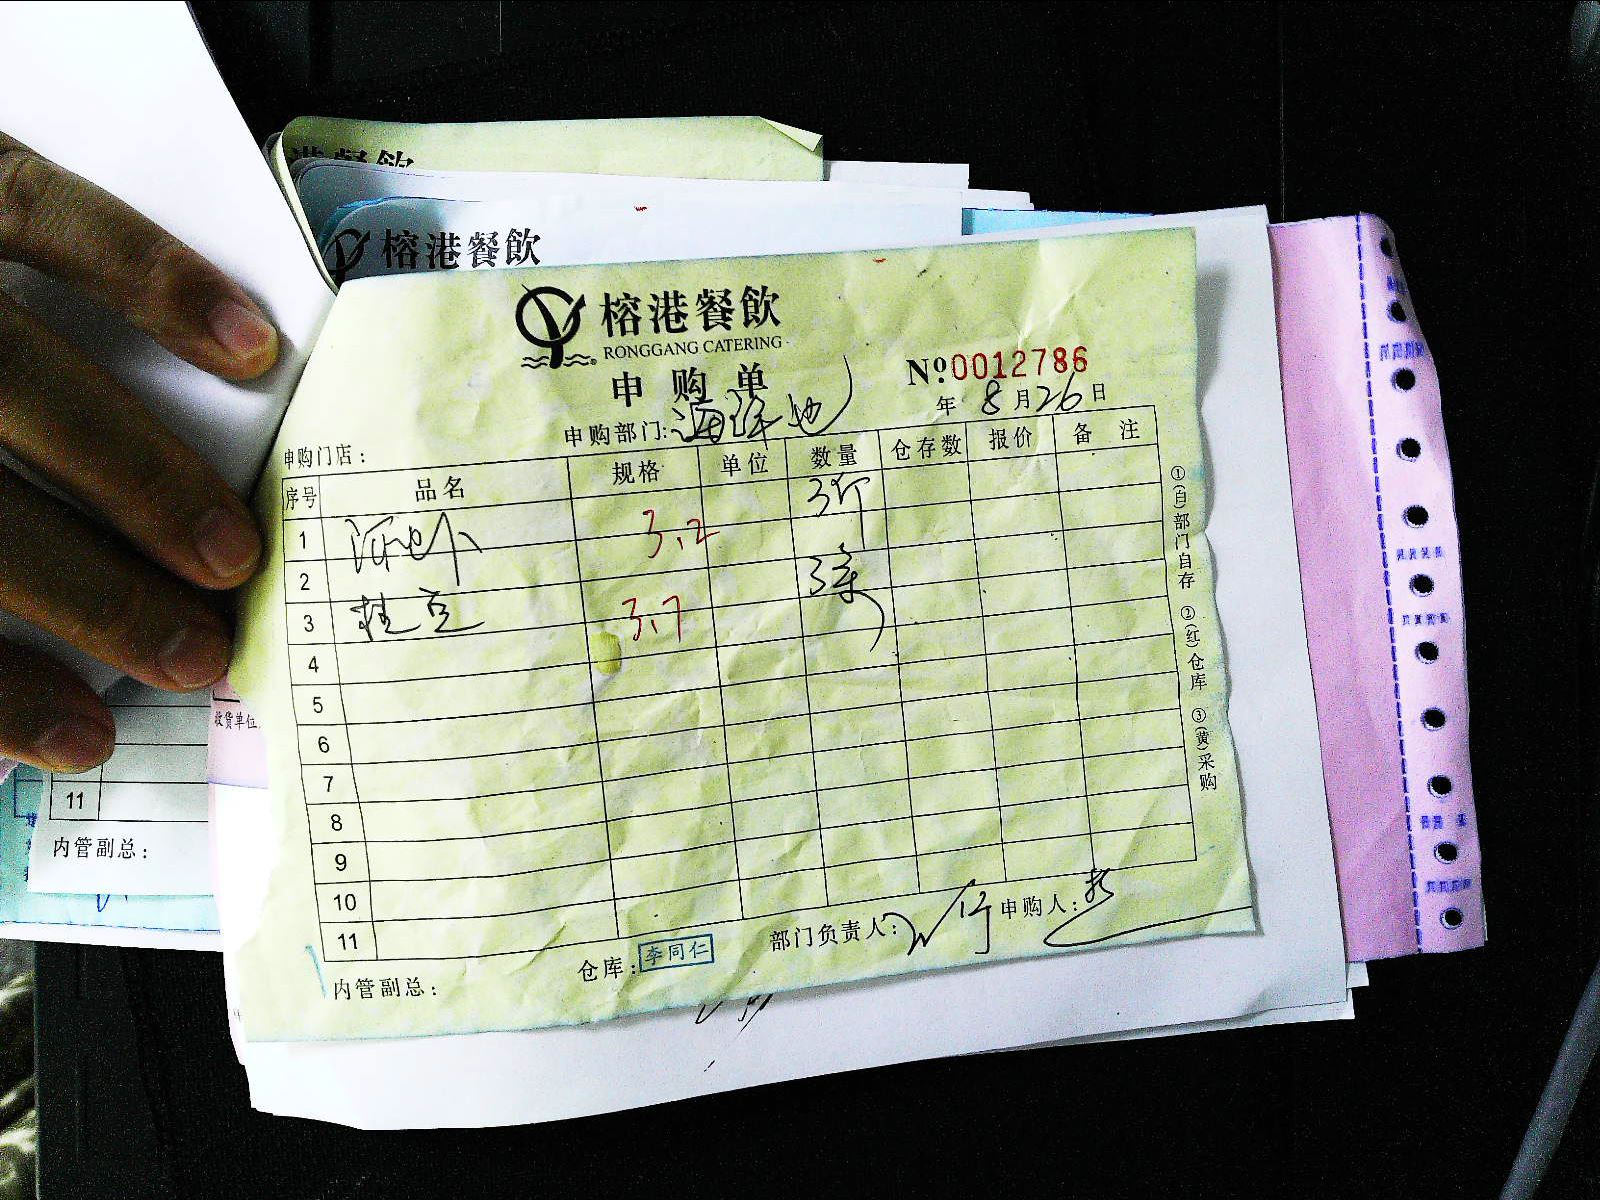 港餐飲
榕港餐飲
榕港餐飲
RONGGANG CATERING
申购单
№0012786
年 8月26日
申购部门:海鲜池
申购门店:
序号 品名 规格 单位 数量 仓存数 报价 备注
1 3.2 3斤
2
3 桂鱼 3.7 3条
4
5
6
7
8
9
10
11
内管副总: 仓库:李同仁 部门负责人: 申购人:
①(白)部门自存 ②(红)仓库 ③(黄)采购
收货单位
11
内管副总: